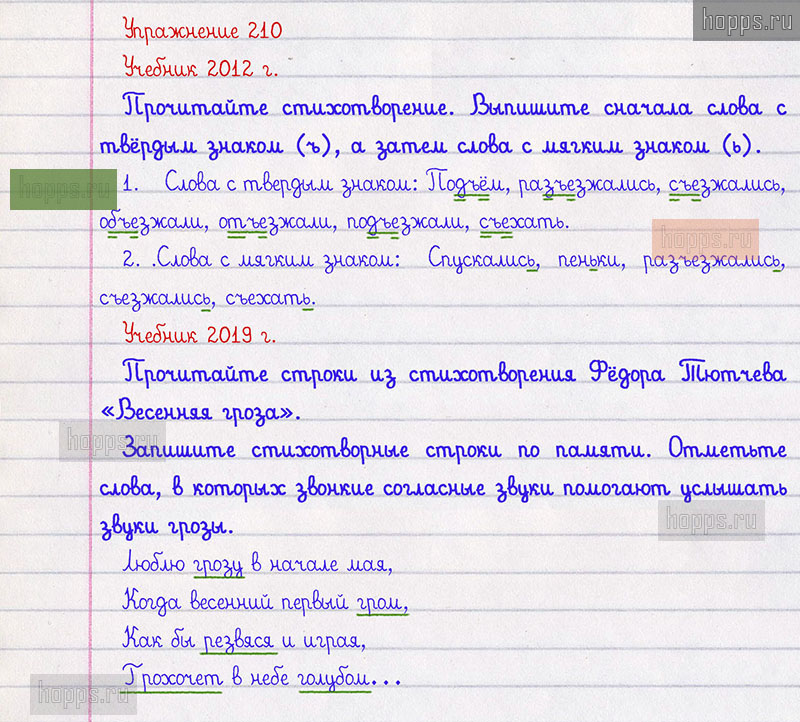 hopps.ru
Упражнение 210
Учебник 2012 г.
Прочитайте стихотворение. Выпишите сначала слова с
твёрдым знаком (ъ), а затем слова с мягким знаком (ь).
hopps.ru
1. Слова с твердым знаком: Подъём, разъезжались, съезжались,
объезжали, отъезжали, подъезжали, съехать.
hopps.ru
2. .Слова с мягким знаком: Спускались, пеньки, разъезжались,
съезжались, съехать.
Учебник 2019 г.
Прочитайте строки из стихотворения Фёдора Тютчева
«Весенняя гроза».
hopps.ru
Запишите стихотворные строки по памяти. Отметьте
слова, в которых звонкие согласные звуки помогают услышать
звуки грозы.
hopps.ru
Люблю грозу в начале мая,
Когда весенний первый гром,
Как бы резвяся и играя,
Грохочет в небе голубом...
hopps.ru